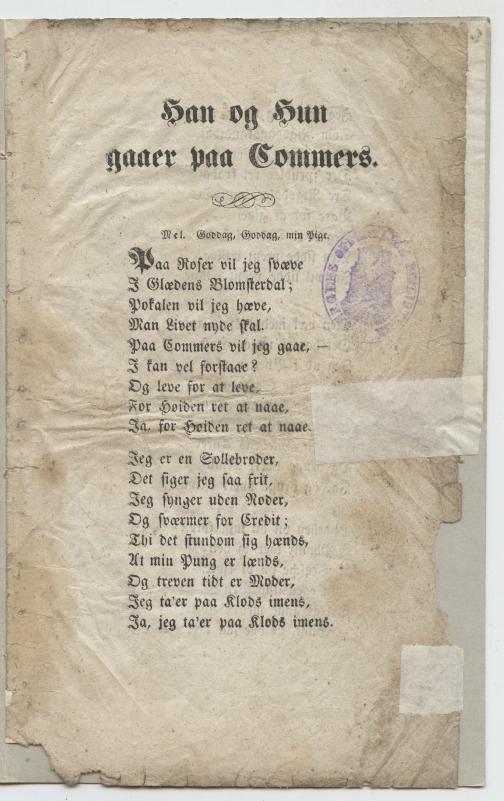 Han og Hun
gaaer paa Commers.
Mel. Goddag, Goddag, min Pige.
Paa Roser vil jeg svæve
I Glædens Blomsterdal;
Pokalen vil jeg hæve,
Man Livet nyde skal.
Paa Commers vil jeg gaae, —
I kan vel forstaae?
Og leve for at leve,
For Høiden ret at naae,
Ja, for Høiden ret at naae.
Jeg er en Sollebroder,
Det siger jeg saa frit,
Jeg synger uden Noder,
Og sværmer for Credit;
Thi det stundom sig hænds,
At min Pung er lænds,
Og treven tidt er Moder,
Jeg ta'er paa Klods imens,
Ja, jeg ta'er paa Klods imens.